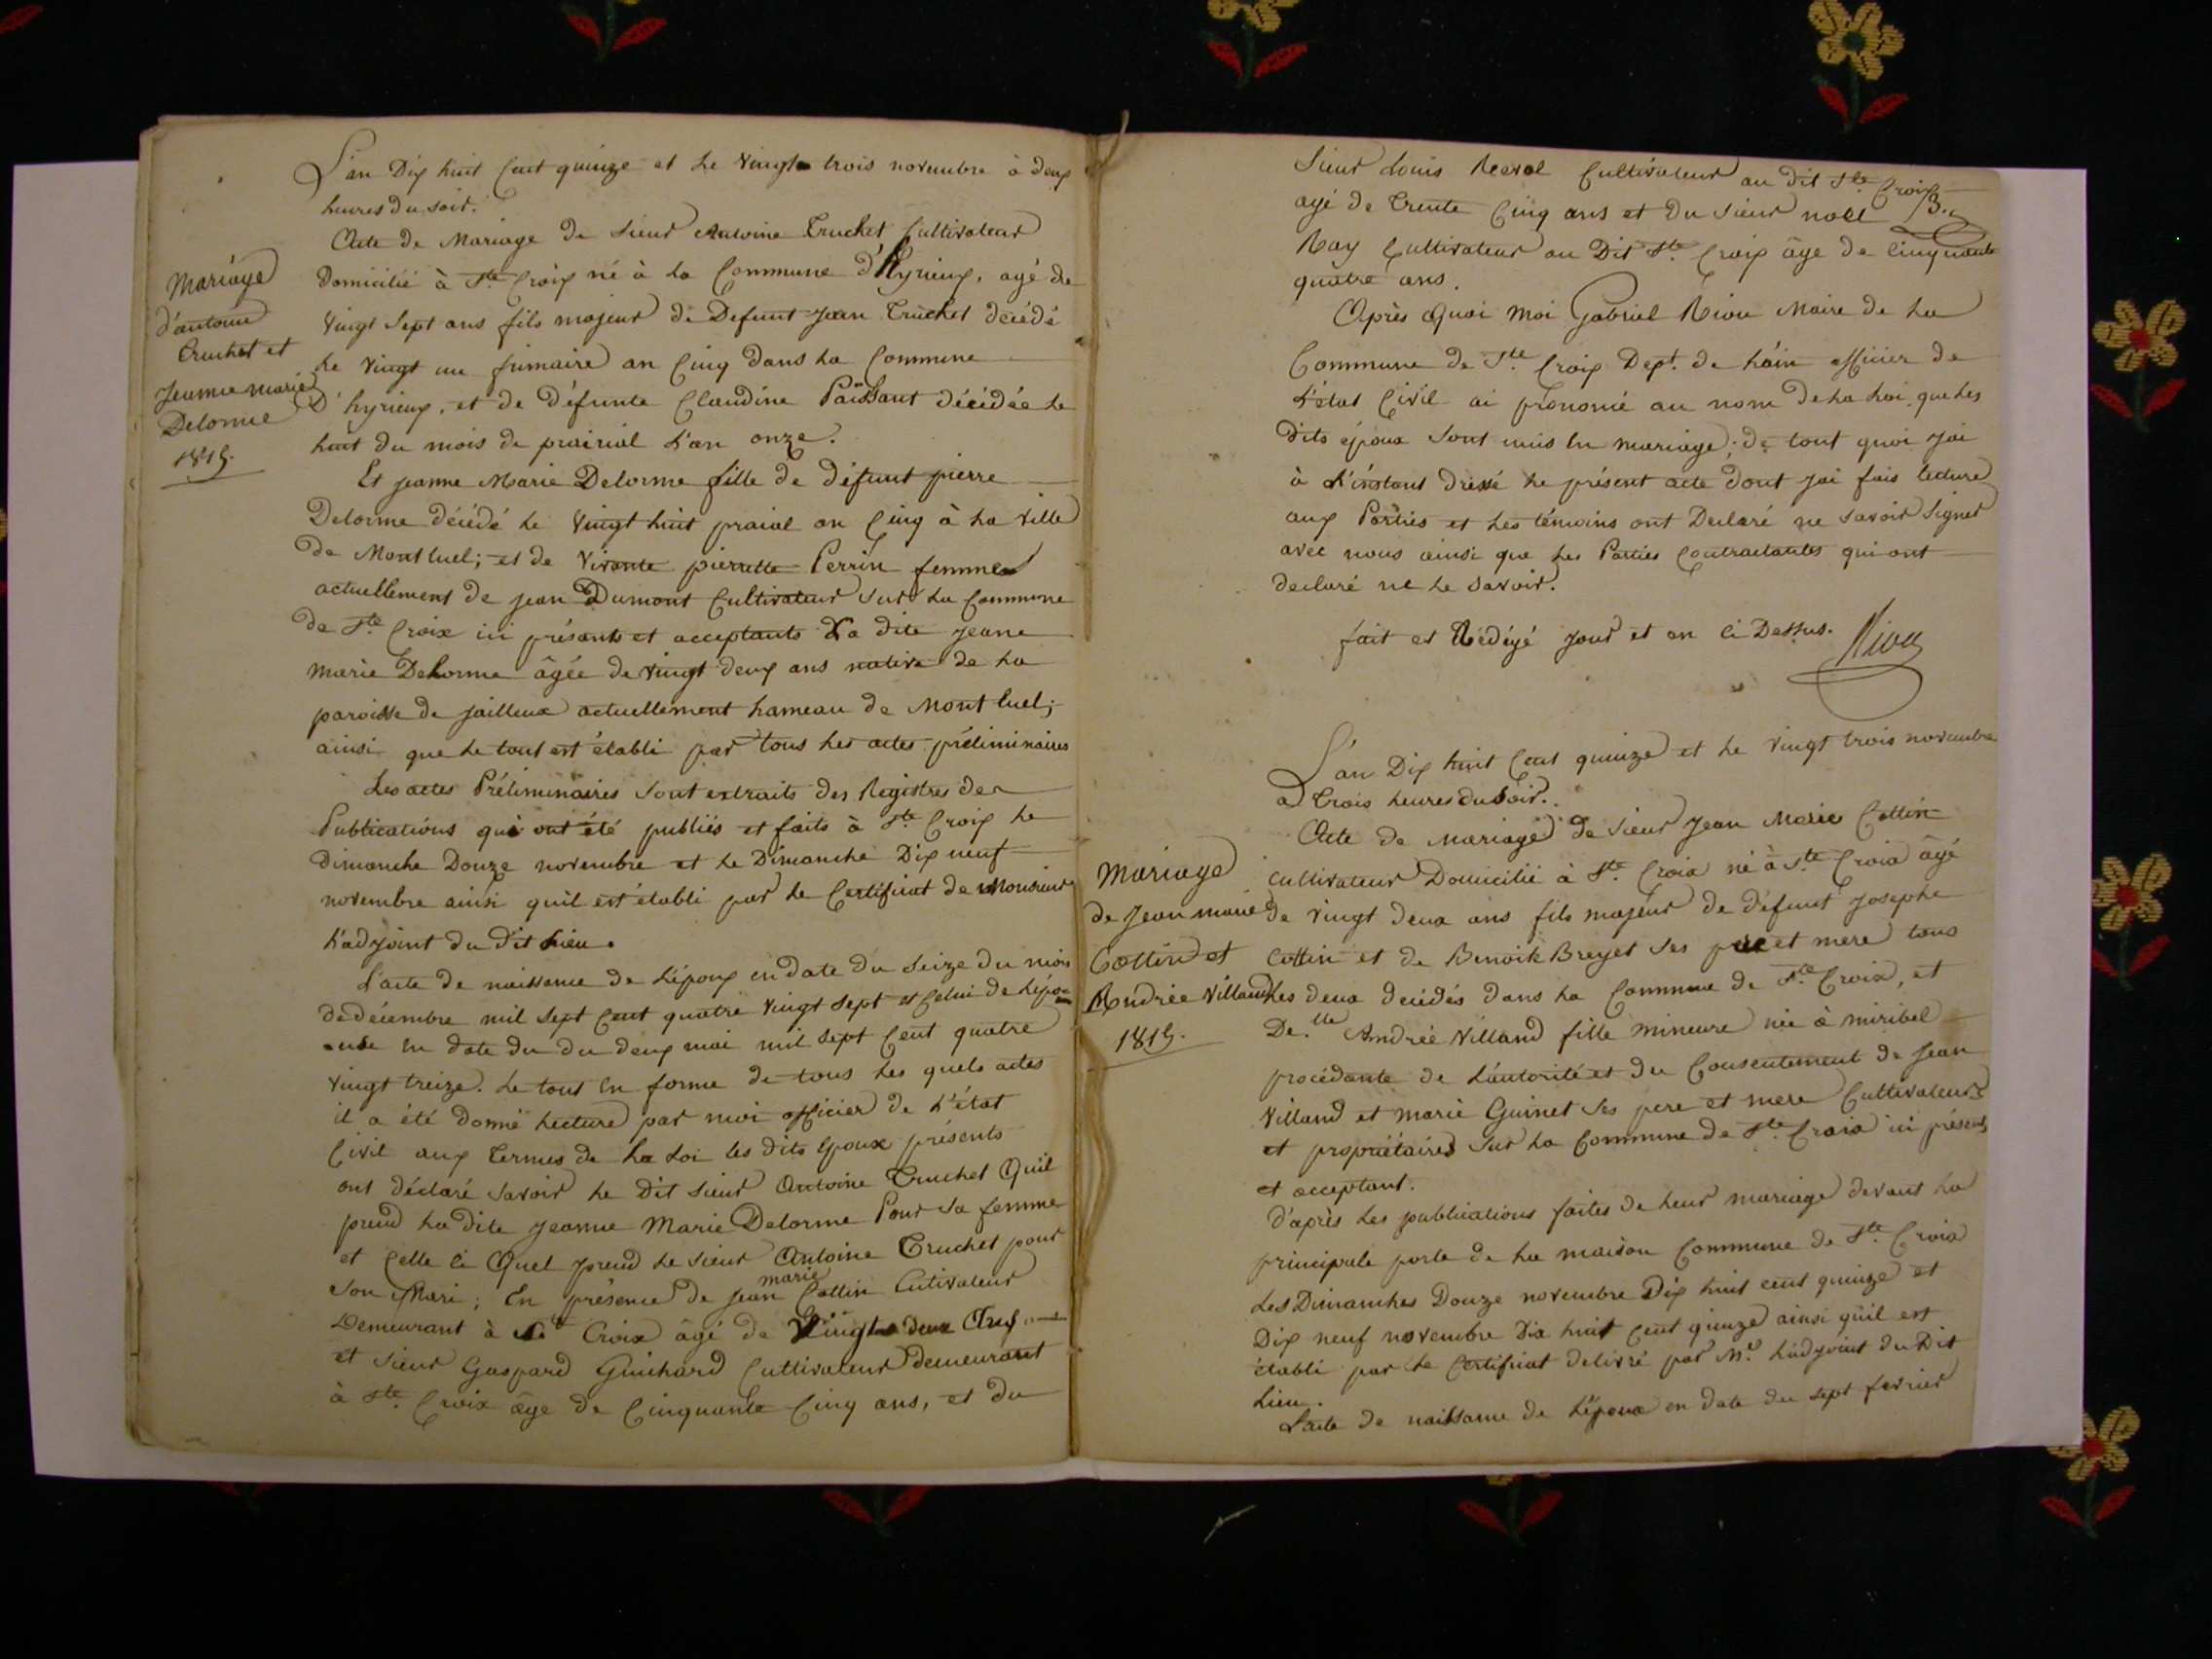 L'an Dix huit Cent quinze et le vingt trois novembre à deux
heures du soir.
Acte de Mariage de Sieur Antoine Truchet Cultivateur
Mariage
d'antoine
Truchet et
Jeanne marie
Delorme
1815.
Domicilié à Ste Croix né à la Commune d'hyrieux, agé de
Vingt Sept ans fils majeur de Defunt Jean Truchet décédé
le vingt un frimaire an Cinq dans la Commune
D'hyrieux, et de défunte Claudine Paissant décédée le
huit du mois de prairial l'an onze.
Et jeanne Marie Delorme fille de défunt pierre
Delorme décédé le vingt huit praial an Cinq à la ville
de Montluel; et de Vivante pierrette Perrin femme
actuellement de jean Dumont Cultivateur Sur la Commune
de Ste Croix ici présents et acceptants La dite jeane
marie Delorme âgée de vingt deux ans native de la
paroisse de jailleux actuellement hameau de Montluel;
ainsi que le tout est établi par tous les actes préliminaires
Les actes Préliminaires sont extraits des Registres de
Publications qui ont été publiés et faits à Ste Croix le
dimanche Douze novembre et le Dimanche Dix neuf
novembre ainsi quil est établi par le Certificat de Monsieur
L'adjoint du dit Lieu.
L'acte de naissance de L'époux en date du Seize du mois
de décembre mil Sept Cent quatre vingt sept et Celui de Lépo
use en date du du deux mai mil Sept Cent quatre
vingt treize. Le tout en forme de tous les quels actes
il a été donné lecture par moi officier de l'état
Civil aux termes de la Loi les dits epoux présents
ont déclaré Savoir le Dit Sieur Antoine Truchet Quil
prend la dite Jeanne Marie Delorme Pour sa femme
et Celle ci Quel prend le Sieur Antoine Truchet pour
Son Mari; En présence de jean marie Cottin Cutivateur
Demeurant à Ste Croix âgé de Vingt deux Ans
et Sieur Gaspard Guichard Cultivateur demeurant
à Ste Croix âge de Cinquante Cinq ans, et du
Sieur Louis Reval Cultivateur au dit Ste Croix
agé de Trente Cinq ans et du Sieur noël
Ray Cultivateur au Dit Ste Croix âge de Cinquante
quatre ans.
Après Quoi moi Gabriel Riou Maire de la
Commune de Ste Croix Dept. de L'ain officier de
L'état Civil ai prononcé au nom de la Loi que les
dits époux Sont unis en mariage; de tout quoi jai
à L'instant dressé le présent acte dont jai fais lecture
aux Parties et les témoins ont Declaré ne Savoir Signer
avec nous ainsi que les Parties Contractantes qui ont
declaré ne le Savoir.
fait et Rédigé jour et an ci Dessus. Riou
L'an Dix huit Cent quinze et le vingt trois novembre
à Trois heures du Soir.
Acte de Mariage de Sieur Jean Marie Cottin
Mariage
de Jean marie
Cottin et
Andrée Villand
1815.
Cultivateur Domicilié à Ste Croix né à Ste Croix âgé
de vingt deux ans fils majeur de défunt Josephe
Cottin et de Benoite Breyet Ses père et mere tous
Les deux decédés dans la Commune de Ste Croix, et
De.lle Andrée Villand fille mineure née à miribel
procédante de L'autorité et du Consentement de Jean
Villand et marie Guinet Ses pere et mere Cultivateurs
et propriétaires Sur la Commune de Ste Croix ici présens
et acceptant.
D'après les publications faites de leur mariage devant la
principale porte de la maison Commune de Ste Croix
Les Dimanches Douze novembre Dix huit cent quinze et
Dix neuf novembre dix huit Cent quinze ainsi quil est
établi par le Certificat delivré par Mr L'adjoint du Dit
Lieu.
L'acte de naissance de L'époux en date du sept fevrier